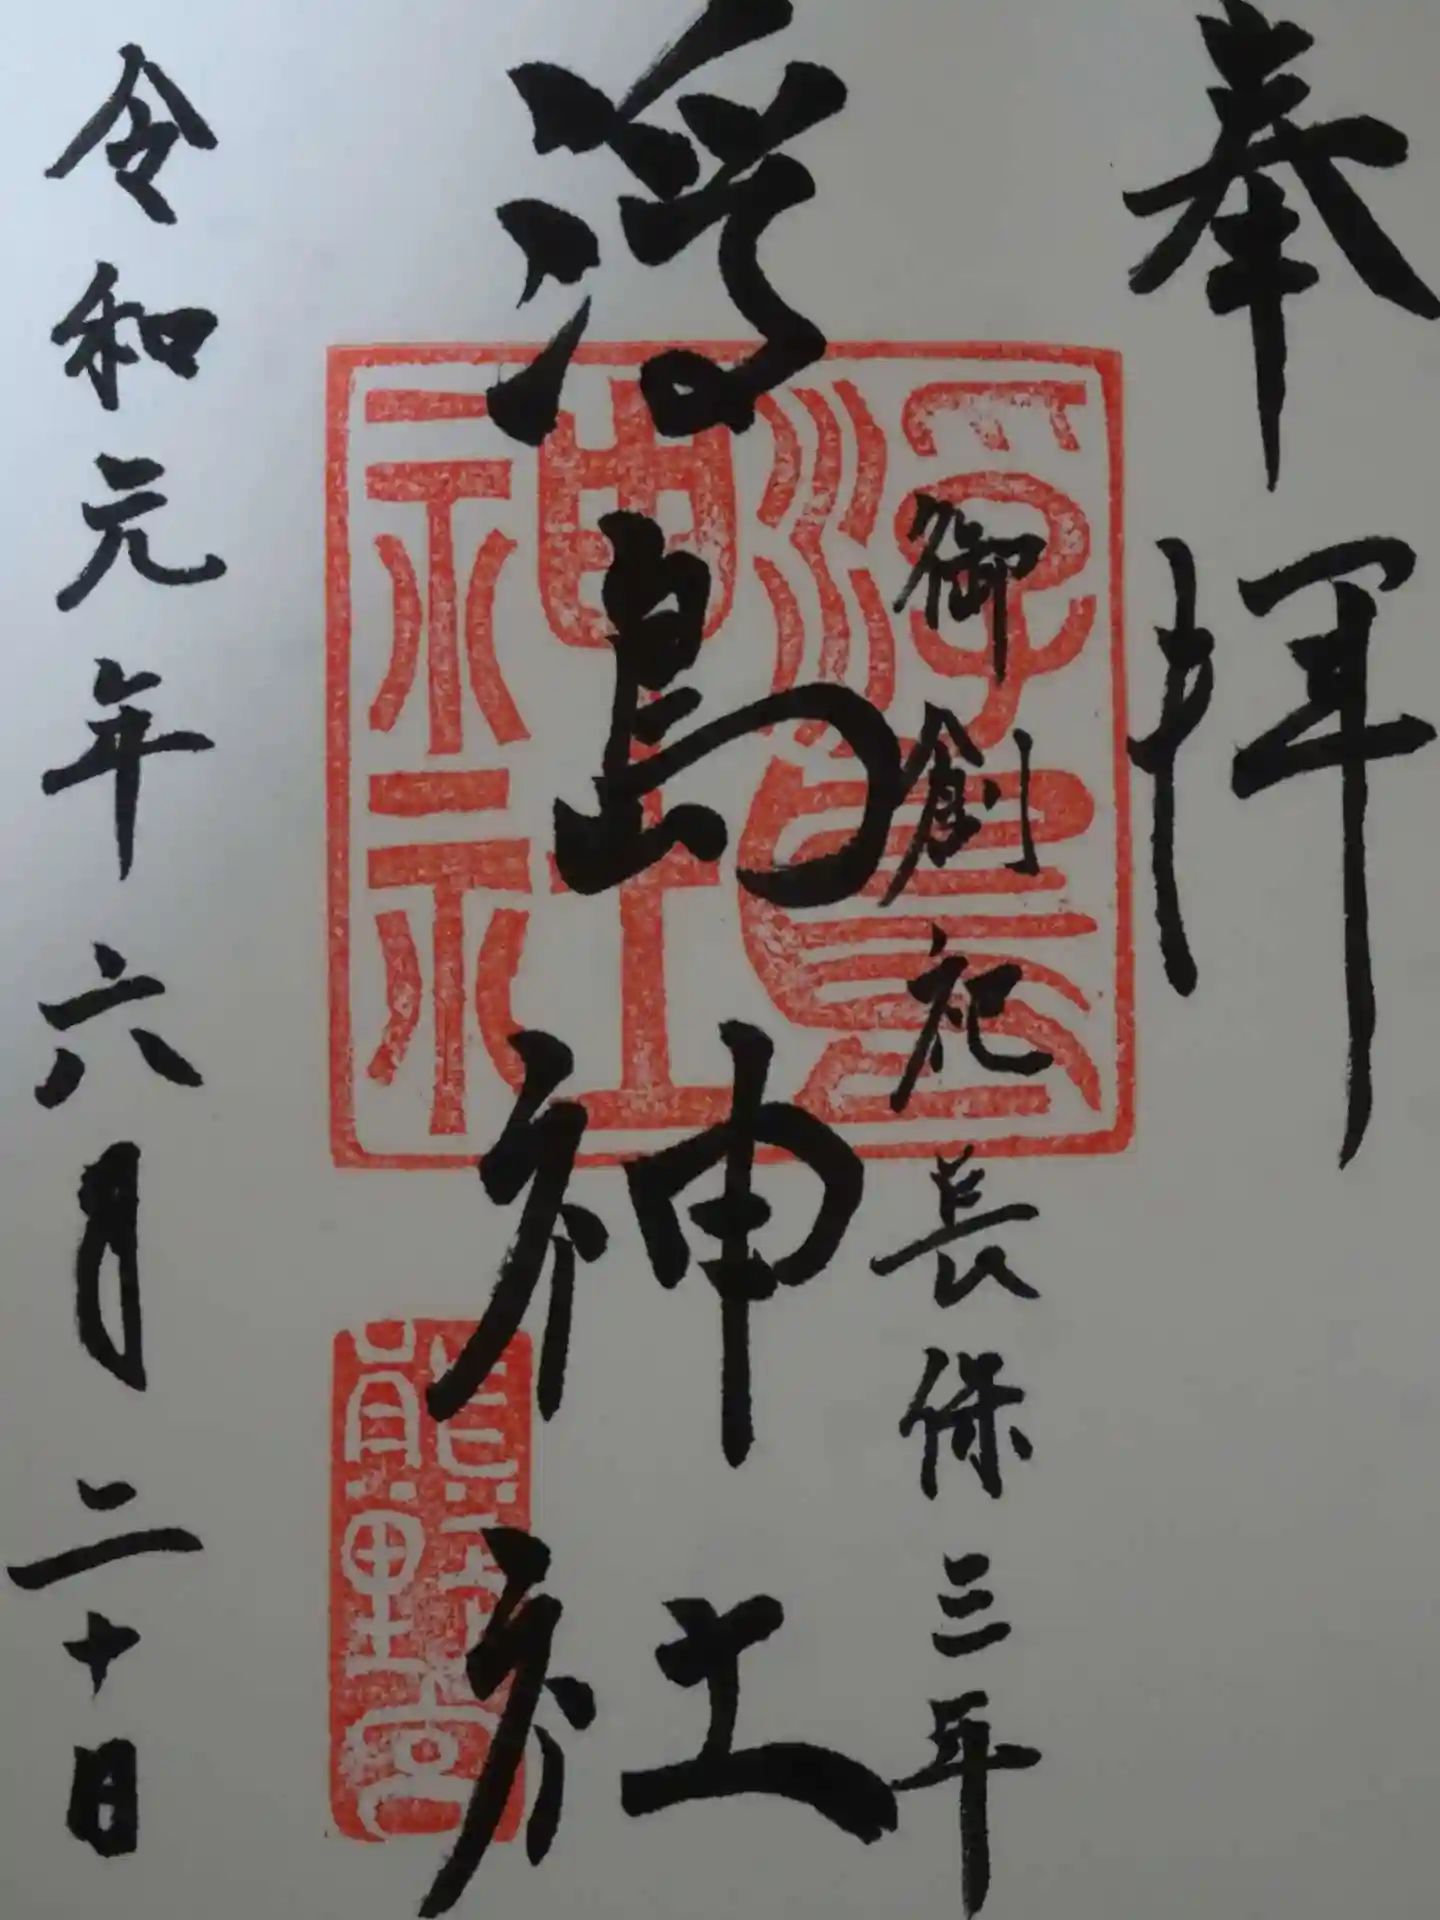 奉拝
御創祀長保三年
浮島神社
令和元年六月二十日
浮島神社